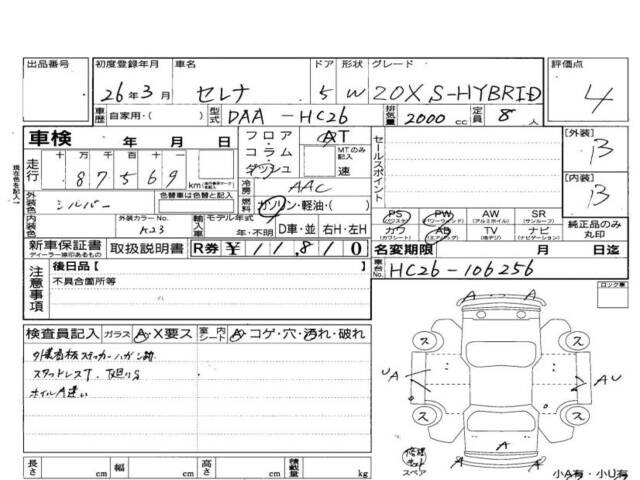 出品番号 初度登録年月 車名 ドア 形状 グレード 評価点
26年3月 セレナ 5 W 20X S-HYBRID 4
車歴 自家用・( ) 型式 DAA-HC26 排気量 2000 cc 定員 8 人
車検 年 月 日 フロア コラム ダッシュ AT MTのみ記入 速 セールスポイント [外装] B
走行 十 万 千 百 十 一 87569 km 冷房 AAC [内装] B
現在色を記入→ 外装色 シルバー 色替車は色替と記入 燃料 ガソリン・軽油・( )
内装色 外装カラーNo. K23 輸入車 モデル年式 年・不明 D車・並 右H・左H
PS (パワステ) PW (パワーウインド) AW (アルミホイル) SR (サンルーフ)
カワ (カワシート) AB (エアバッグ) TV (地デジ) ナビ (ナビゲーション) 純正品のみ丸印
新車保証書 ディーラー捺印あるもの 取扱説明書 R券 ¥ 11,810 名変期限 月 日迄
注意事項 後日品【 】 車台No. HC26-106256
不具合箇所等 ロック車
検査員記入 ガラス A・X要ス 室内シート A・コゲ・穴・汚れ・破れ
外装看板ステッカーハガシ跡
スタッドレスT.下廻りS
ホイルA違い
A A
ス ス
U A A U
ス ス
A
A A
修理キット
スペア
長さ cm 幅 cm 高さ cm 積載量 kg 小A有・小U有